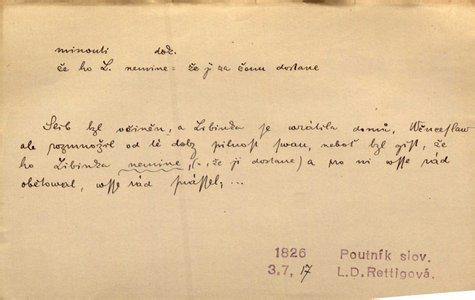 minouti dok.
že ho L. nemine = že ji za ženu dostane
Slib byl učiněn, a Libinka se wrátila domů, Wěnceslaw
ale rozmnožil od té doby pilnost swau, neboť byl gist, že
ho Libinka nemine, (=, že ji dostane) a pro ni wsse rád
obětowal, wsse rád snássel; ...
1826 Poutník slov.
3.7, 17 L.D. Rettigová.